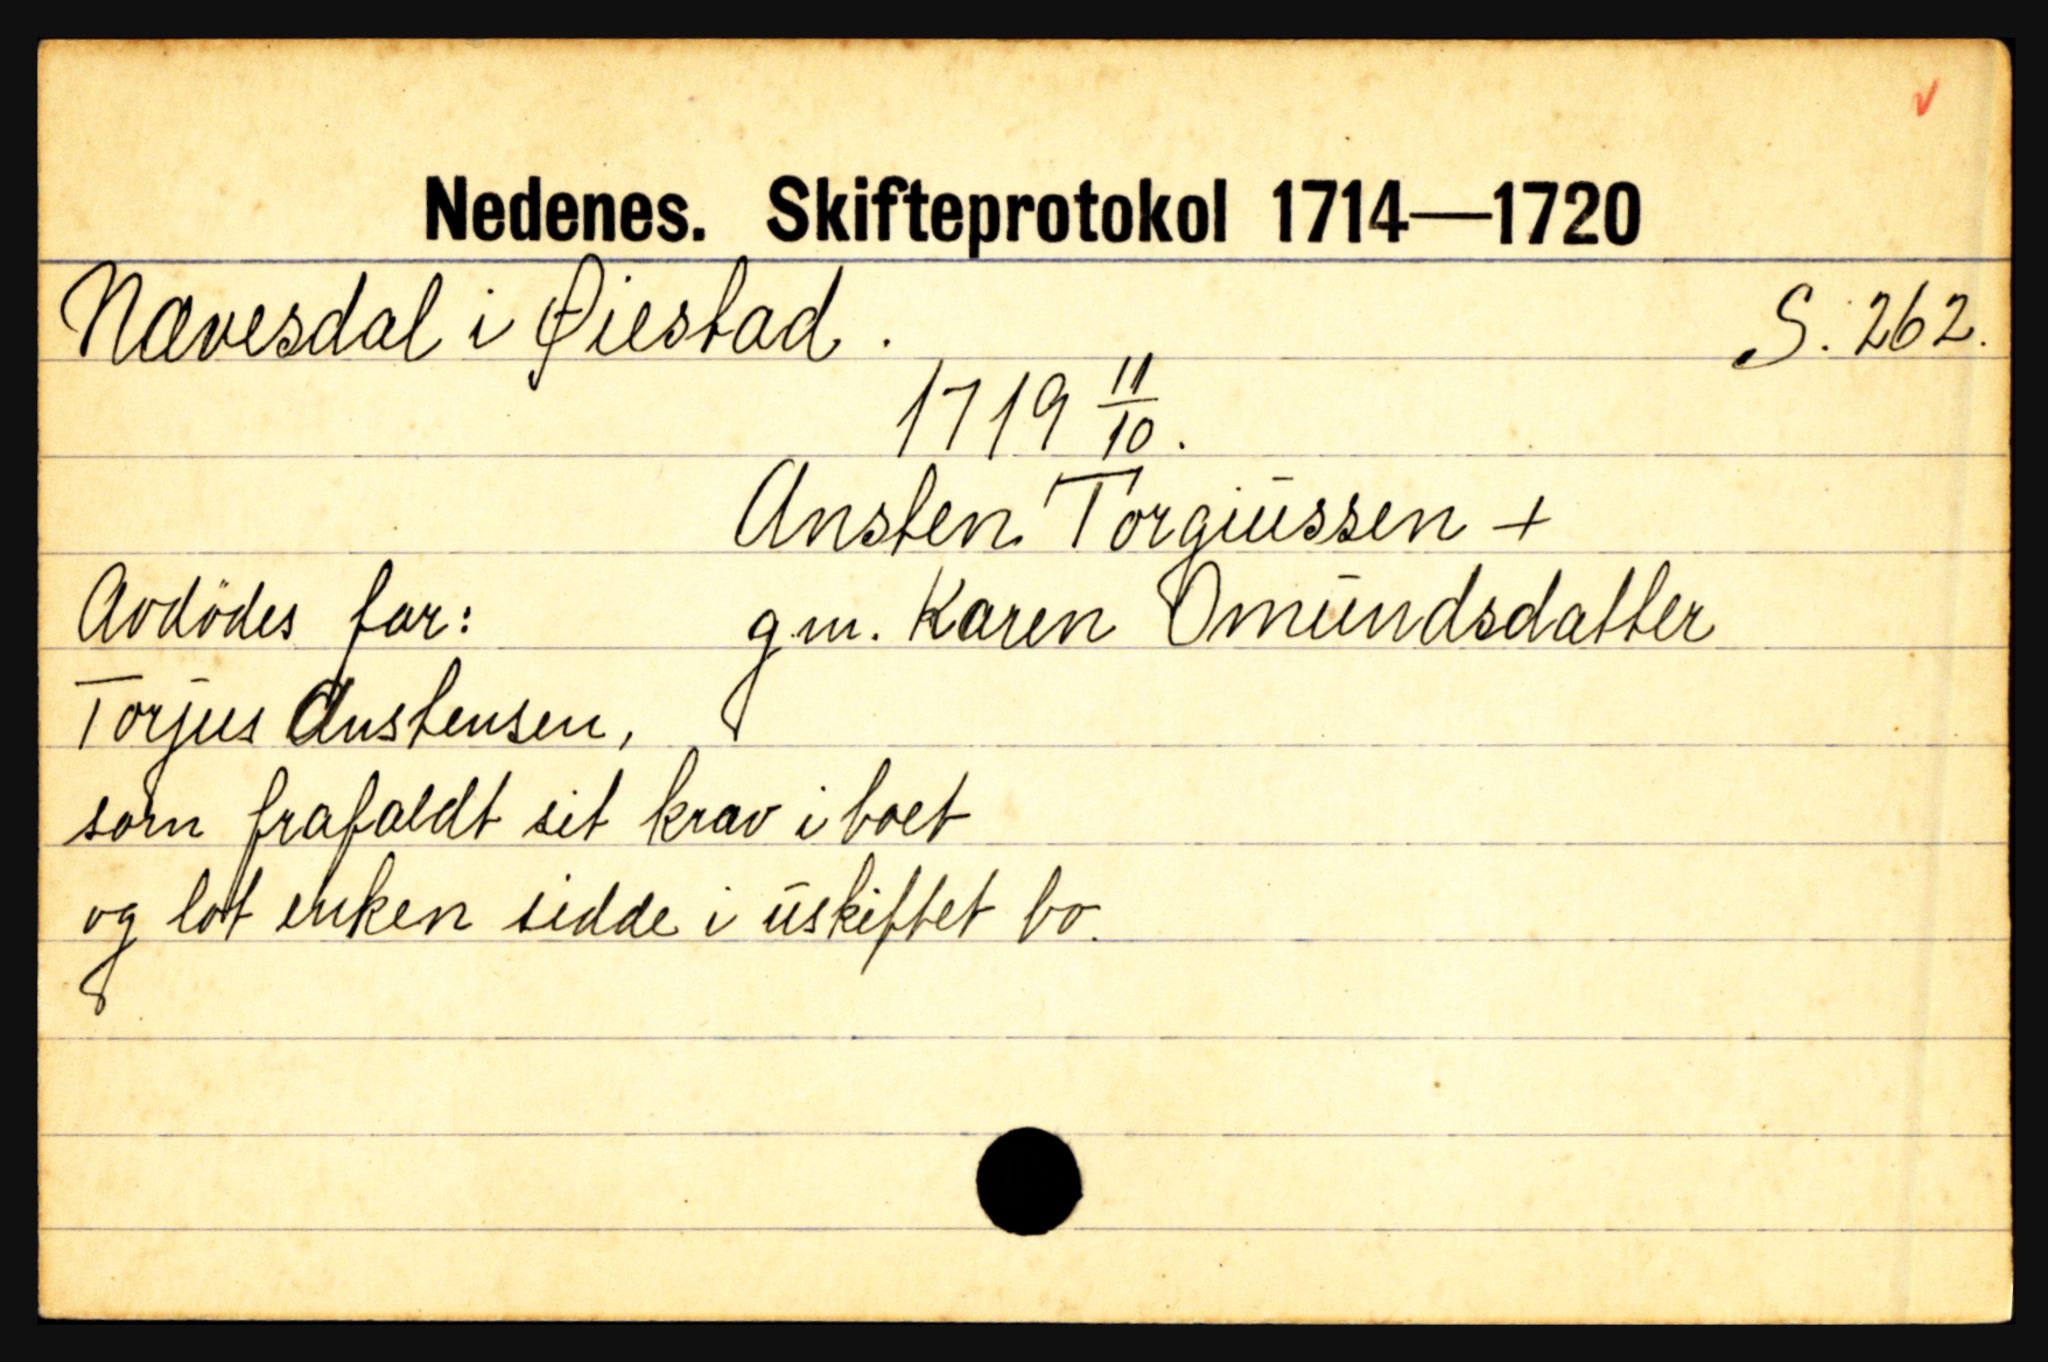 Nedenes. Skifteprotokol 1714—1720
Nævesdal i Øiestad. S. 262.
1719 11/10.
Ansten Torgiussen +
Avdödes far: g.m. Karen Omundsdatter
Torjus Anstensen,
som frafaldt sit krav i boet
og lot enken sidde i uskiftet bo.